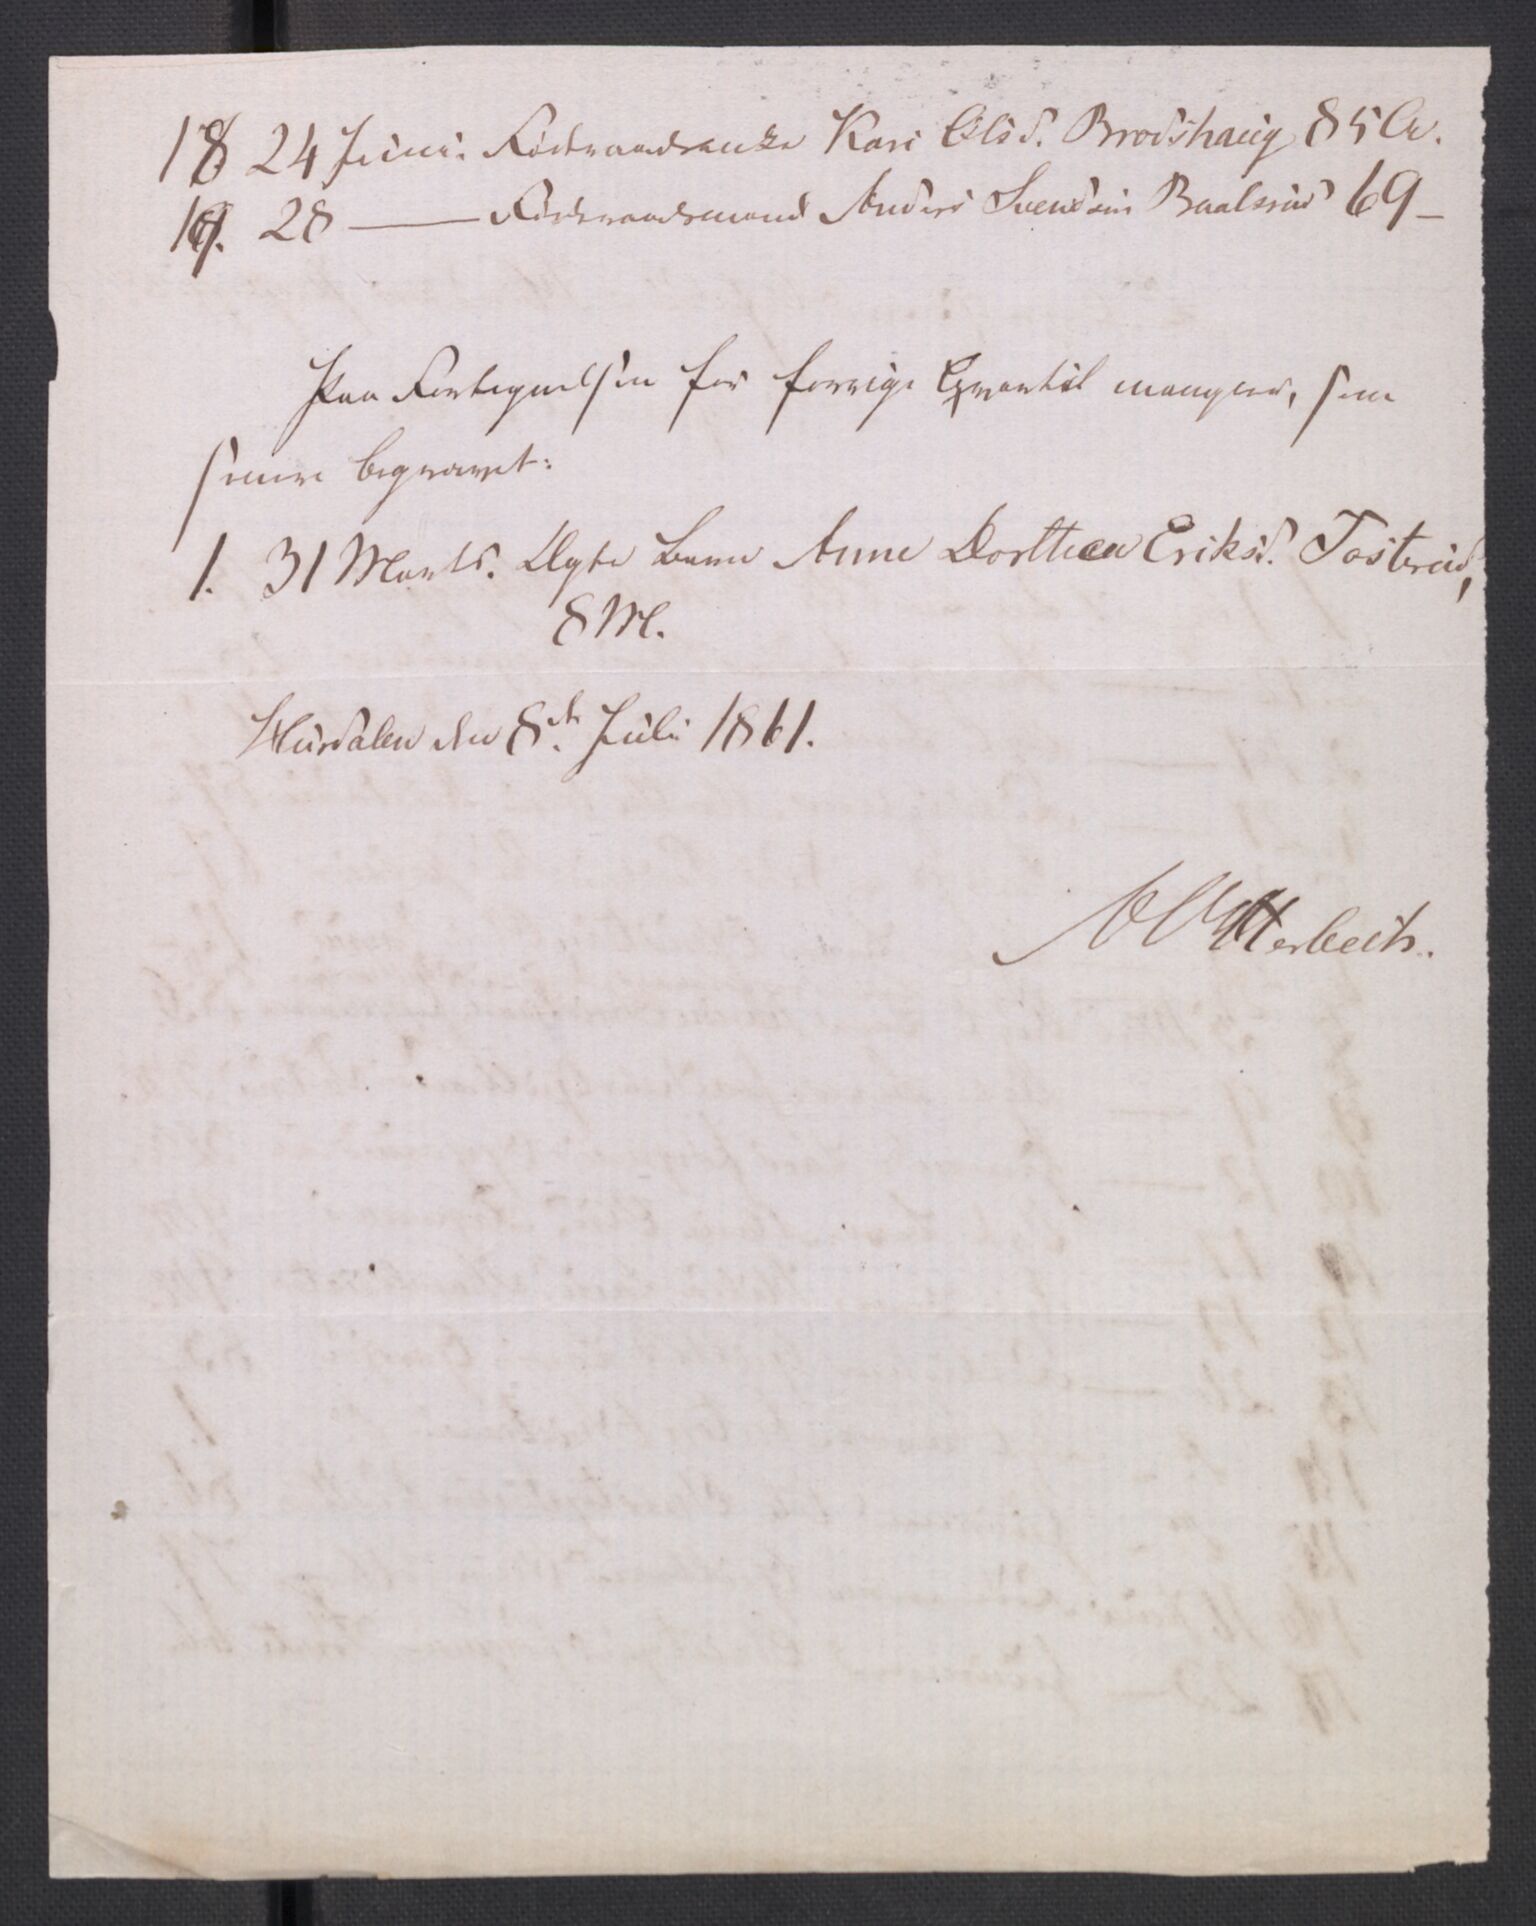 18 24 Juni. Föderaadsenke Kari Olsd. Brodshaug 85 Ar.
19. 28 — Föderaadsmand Anders Svendsen Baalsrud 69 –
Paa Fortegnelsen for forrige Qvartal mangler, som
senere begravet:
1. 31 Marts. Ægte Barn Anne Dorthea Eriksd. Tosterud,
8 M.
Hurdalen den 8de Juli 1861.